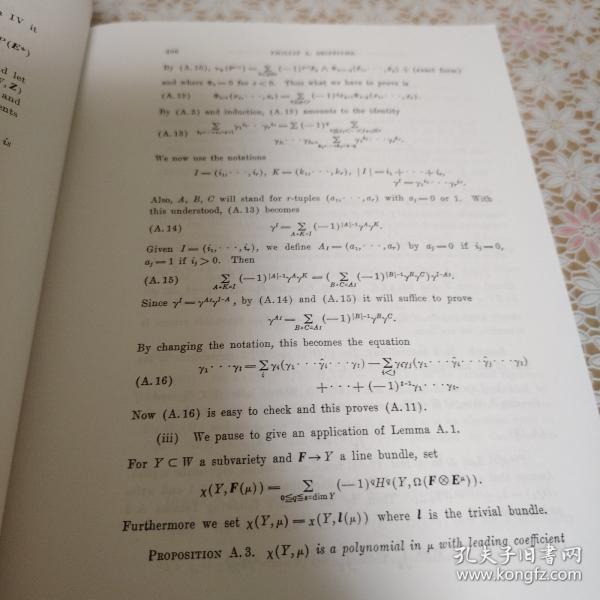 IV it
(E^μ)
d let
Y, Z)
and
ents
is
PHILLIP A. GRIFFITHS.
and where = 0 for s < 0. Thus what we have to prove is
(A. 12)
By (A. 5) and induction, (A. 12) amounts to the identity
(A. 13)
We now use the notations
I = (i₁, · · ·, i_r), K = (k₁, · · ·, k_r), | I | = i₁ + · · · + i_r,
Also, A, B, C will stand for r-tuples (a₁, · · ·, a_r) with a_j = 0 or 1. With
this understood, (A. 13) becomes
(A. 14) γ^I = Σ_{A+K=I} (—1)^{|A|-1}γ^Aγ^K.
Given I = (i₁, · · ·, i_r), we define A_I = (a₁, · · ·, a_r) by a_j = 0 if i_j = 0,
a_j = 1 if i_j > 0. Then
(A. 15) Σ_{A+K=I} (—1)^{|A|-1}γ^Aγ^K = ( Σ_{B+C=A_I} (—1)^{|B|-1}γ^Bγ^C)γ^{I-A_I}.
Since γ^I = γ^{A_I}γ^{I-A}, by (A. 14) and (A. 15) it will suffice to prove
γ^{A_I} = Σ_{B+C=A_I} (—1)^{|B|-1}γ^Bγ^C.
By changing the notation, this becomes the equation
(A. 16) γ₁ · · · γ_t = Σ_i γ_i(γ₁ · · · γ̂_i · · · γ_t) — Σ_{i<j} γ_iγ_j(γ₁ · · · γ̂_i · · · γ̂_j · · · γ_t)
+ · · · + (—1)^{t-1}γ₁ · · · γ_t.
Now (A. 16) is easy to check and this proves (A. 11).
(iii) We pause to give an application of Lemma A. 1.
For Y ⊂ W a subvariety and F → Y a line bundle, set
χ(Y, F(μ)) = Σ_{0≦q≦s=dim Y} (—1)^q H^q(Y, Ω(F ⊗ E^μ)).
Furthermore we set χ(Y, μ) = χ(Y, l(μ)) where l is the trivial bundle.
PROPOSITION A. 3. χ(Y, μ) is a polynomial in μ with leading coefficient
孔夫子旧书网
www.kongfz.com